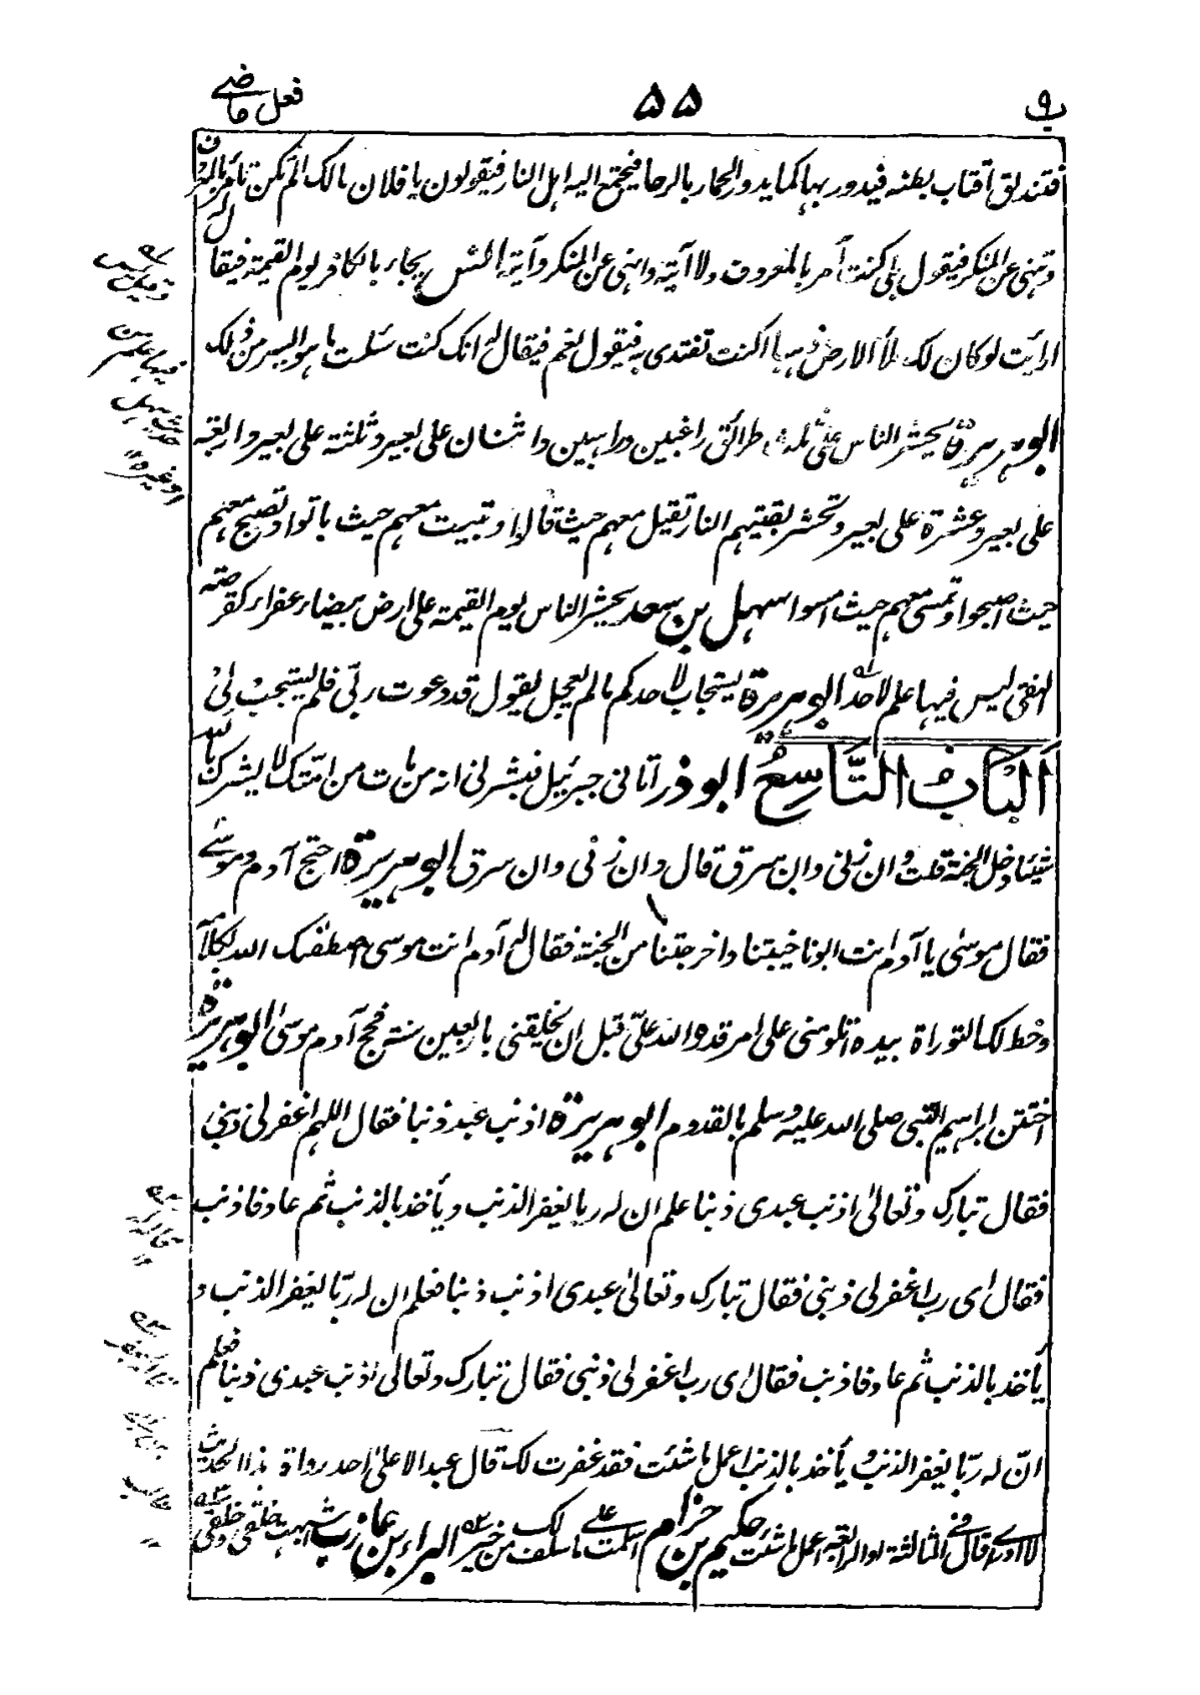 ب ۹
۵۵
فعل ماضی
فتندلق اقتاب بطنه فیدور بها کما یدور الحمار بالرحا فیجتمع الیه اهل النار فیقولون یا فلان مالک الم تکن تأمر بالمعروف
وتنهی عن المنکر فیقول بلی کنت آمر بالمعروف ولا آتیه وانهی عن المنکر وآتیه انس یجاء بالکافر یوم القیمة فیقال له
ارایت لو کان لک ملأ الارض ذهبا اکنت تفتدی به فیقول نعم فیقال له انک کنت سئلت ما هو ایسر من ذلک
ابو هریرة یحشر الناس علی ثلث طرائق راغبین وراهبین واثنان علی بعیر وثلثة علی بعیر واربعة
علی بعیر وعشرة علی بعیر وتحشر بقیتهم النار تقیل معهم حیث قالوا وتبیت معهم حیث باتوا وتصبح معهم
حیث اصبحوا وتمسی معهم حیث امسوا سهل بن سعد یحشر الناس یوم القیمة علی ارض بیضاء عفراء کقرصة
النقی لیس فیها علم لاحد ابو هریرة یستجاب لاحدکم ما لم یعجل یقول قد دعوت ربی فلم یستجب لی
الباب التاسع ابو ذر اتانی جبرئیل فبشرنی انه من مات من امتک لا یشرک بالله
شیئا دخل الجنة قلت وان زنی وان سرق قال وان زنی وان سرق ابو هریرة احتج آدم وموسی
فقال موسی یا آدم انت ابونا خیبتنا واخرجتنا من الجنة فقال له آدم انت موسی اصطفیک الله بکلامه
وخط لک التوراة بیده اتلومنی علی امر قدره الله علی قبل ان یخلقنی باربعین سنة فحج آدم موسی ابو هریرة
اختتن ابراهیم النبی صلی الله علیه وسلم بالقدوم ابو هریرة اذنب عبد ذنبا فقال اللهم اغفر لی ذنبی
فقال تبارک وتعالی اذنب عبدی ذنبا علم ان له ربا یغفر الذنب ویأخذ بالذنب ثم عاد فاذنب
فقال ای رب اغفر لی ذنبی فقال تبارک وتعالی عبدی اذنب ذنبا فعلم ان له ربا یغفر الذنب و
یأخذ بالذنب ثم عاد فاذنب فقال ای رب اغفر لی ذنبی فقال تبارک وتعالی اذنب عبدی ذنبا فعلم
ان له ربا یغفر الذنب ویأخذ بالذنب اعمل ما شئت فقد غفرت لک قال عبد الاعلی احد رواة هذا الحدیث
لا ادری اقال فی الثالثة او الرابعة اعمل ما شئت حکیم بن حزام اسلمت علی ما سلف لک من خیر البراء بن عازب اشبهت خلقی وخلقی